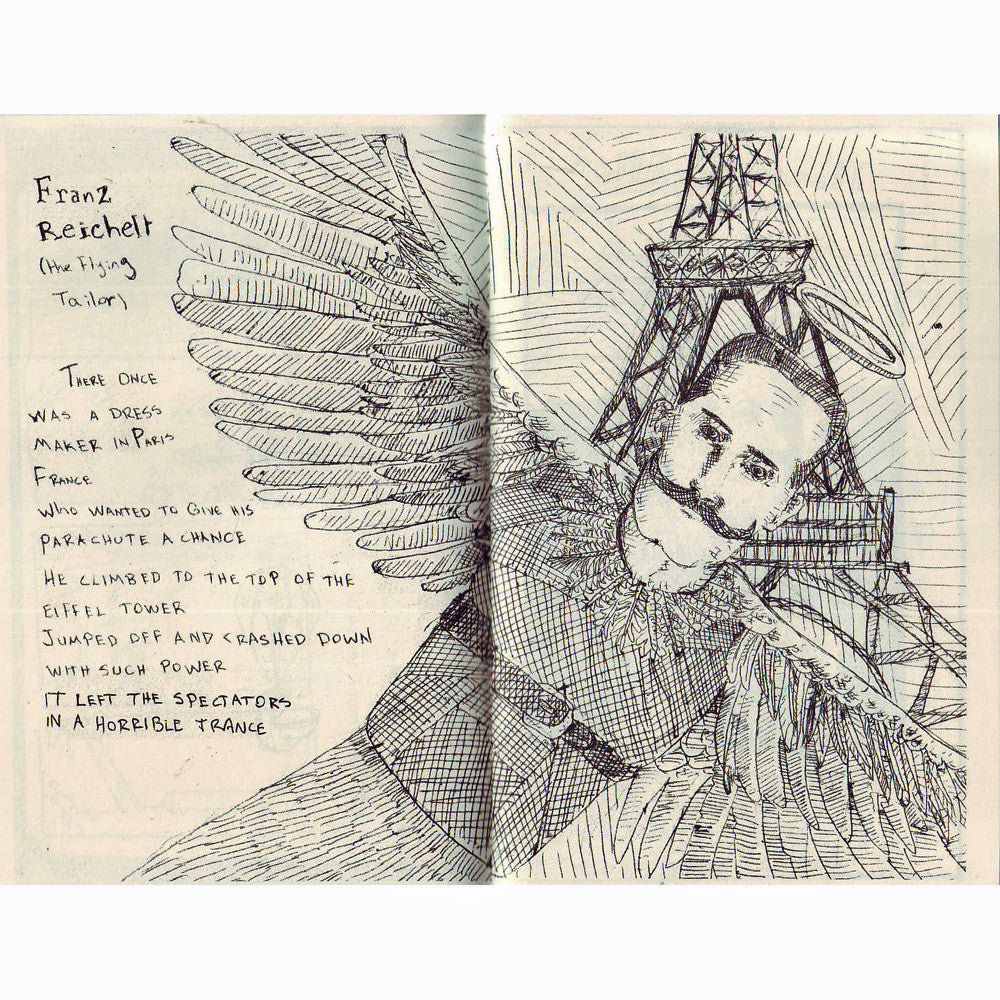 Franz
Reichelt
(the Flying
Tailor)
THERE ONCE
WAS A DRESS
MAKER IN PARIS
FRANCE
WHO WANTED TO GIVE HIS
PARACHUTE A CHANCE
HE CLIMBED TO THE TOP OF THE
EIFFEL TOWER
JUMPED OFF AND CRASHED DOWN
WITH SUCH POWER
IT LEFT THE SPECTATORS
IN A HORRIBLE TRANCE